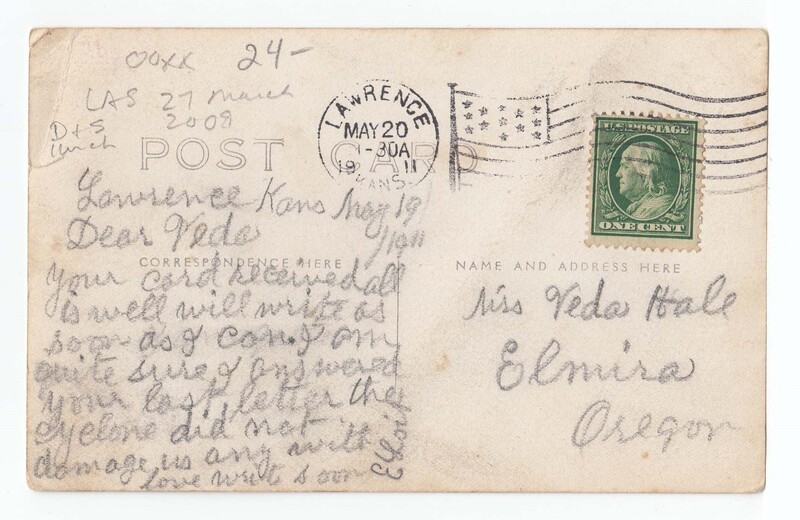 ooxx 24-
LAS 27 March
2008
D+S
lunch
LAWRENCE
MAY 20
-30A
19 11
KANS.
U.S. POSTAGE
ONE CENT
POST CARD
Lawrence Kans May 19
/1911
Dear Veda
CORRESPONDENCE HERE
Your card received all
is well will write as
soon as I can. I am
quite sure I answered
your last letter the
cyclone did not
damage us any with
love write soon
NAME AND ADDRESS HERE
Miss Veda Hale
Elmira
Oregon